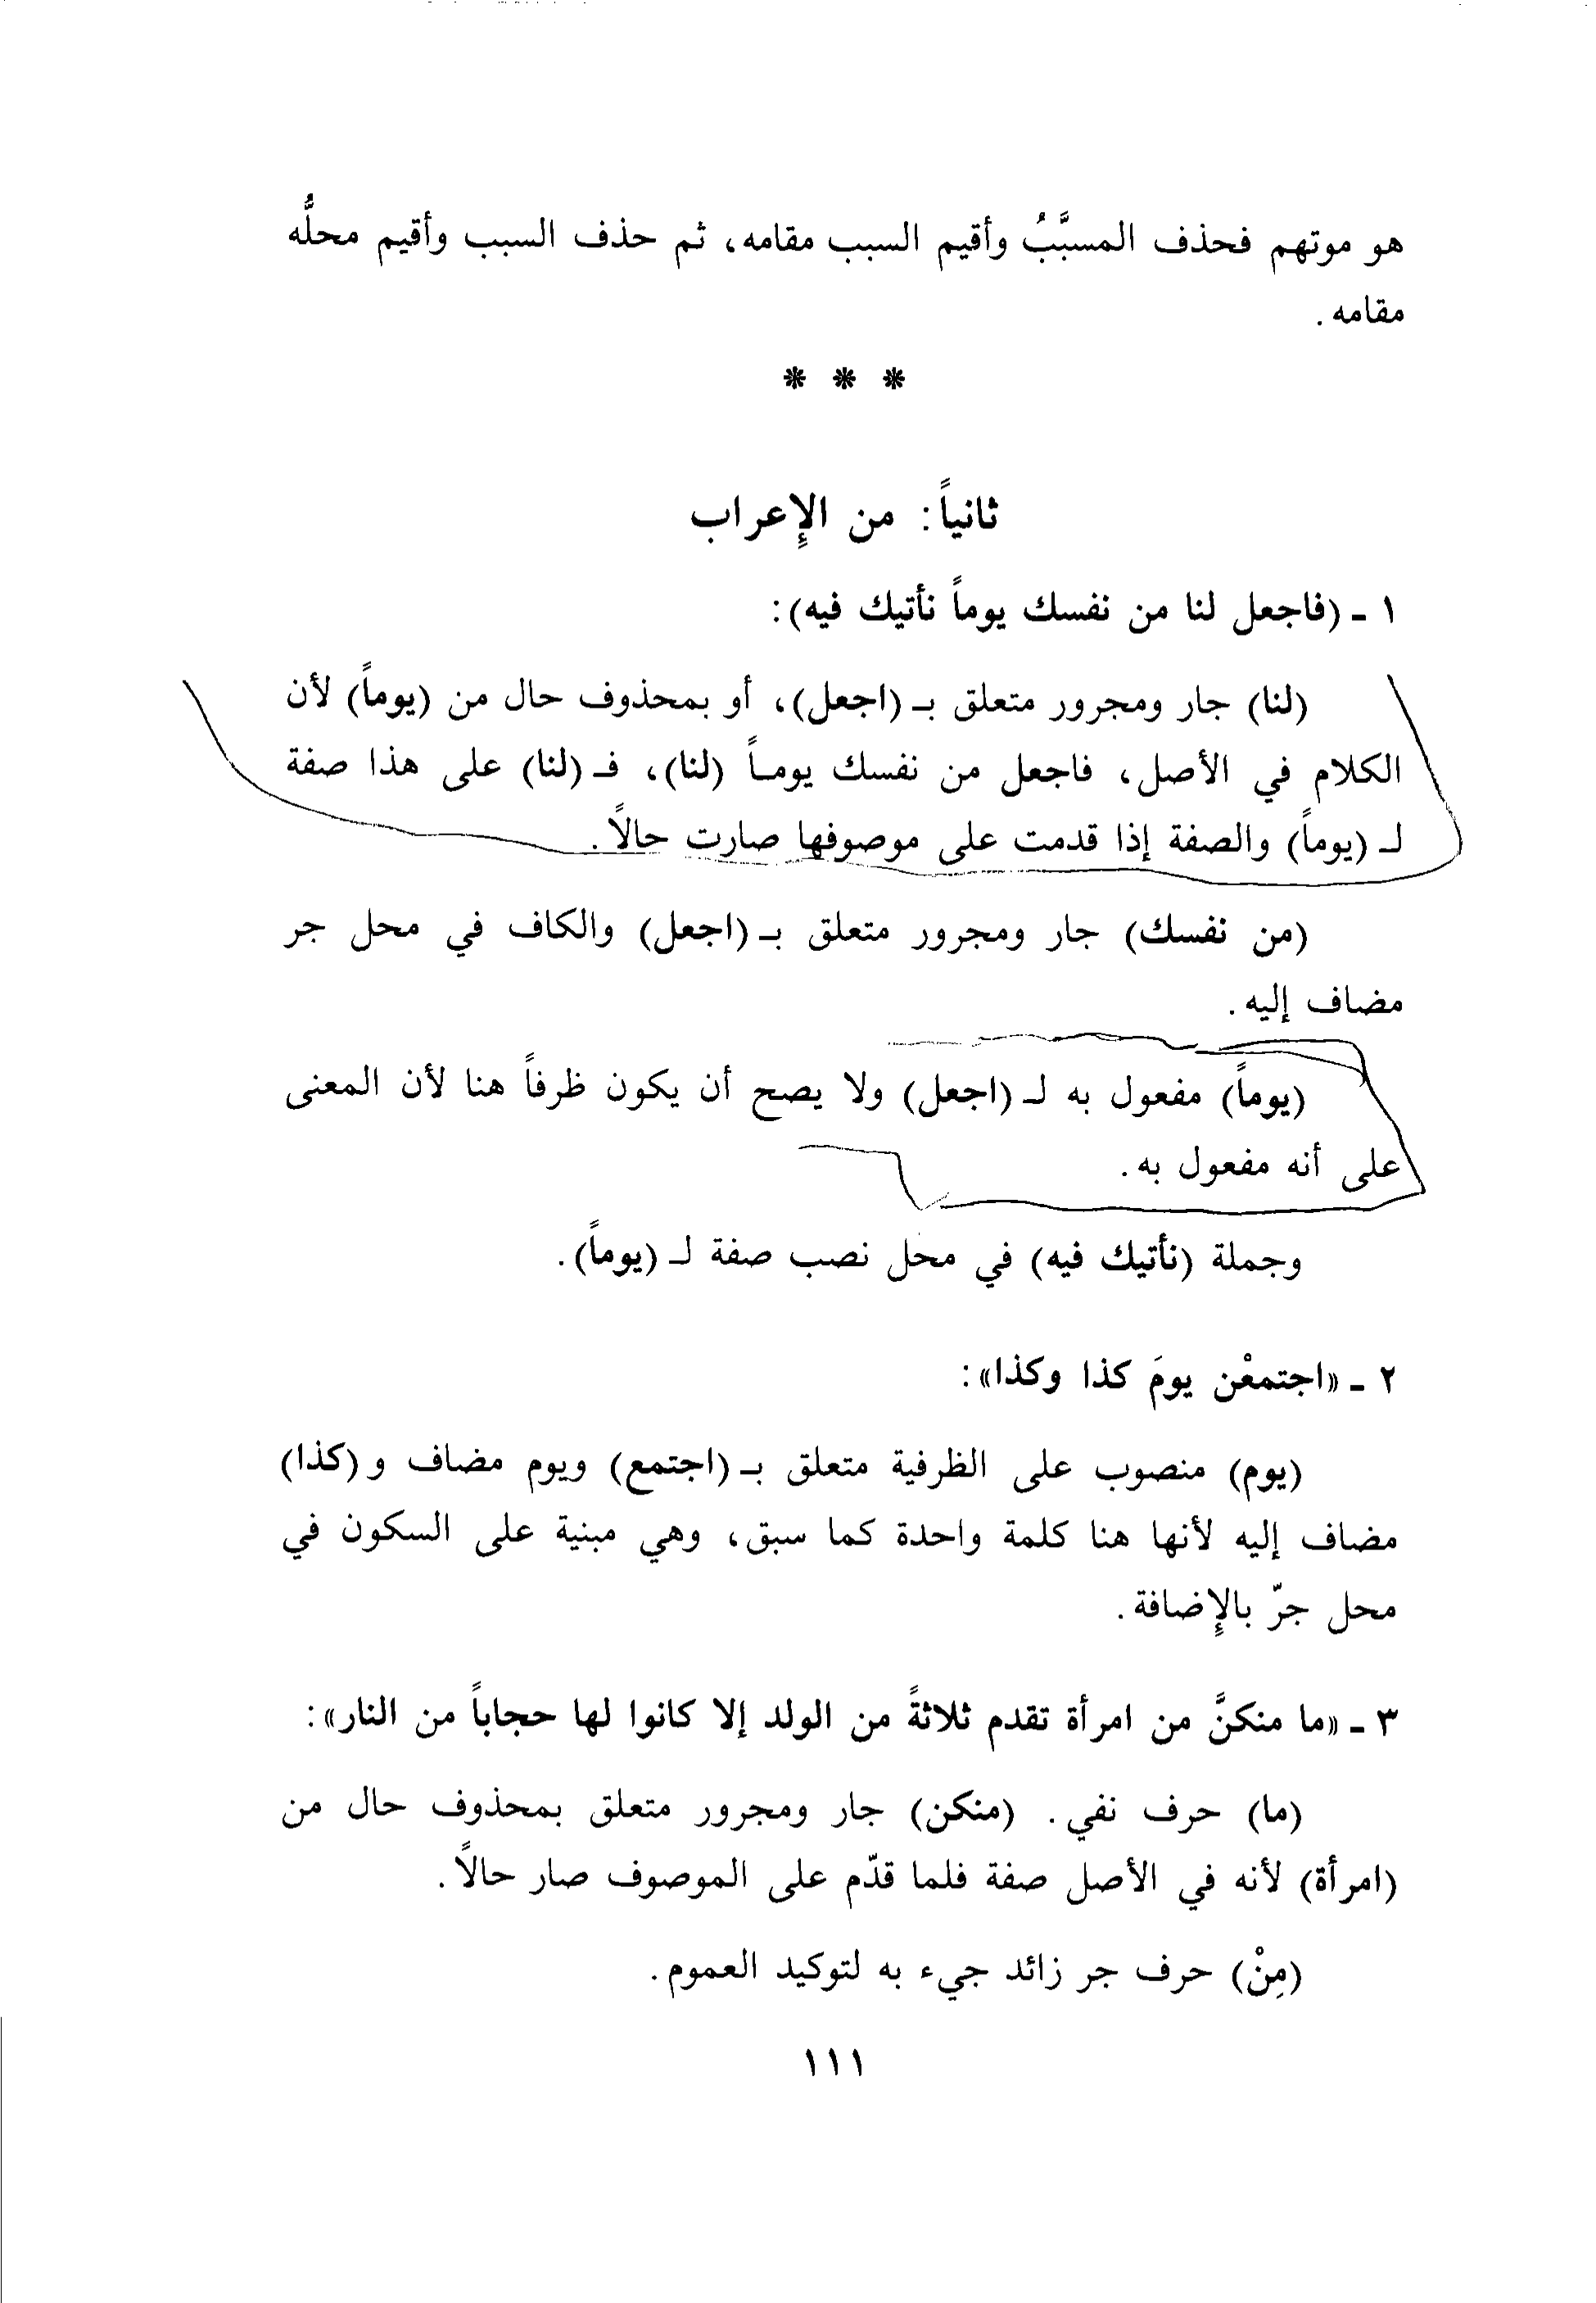 هو موتهم فحذف المسبَّبُ وأقيم السبب مقامه، ثم حذف السبب وأقيم محلُّه
مقامه.
* * *
ثانياً: من الإعراب
١ ـ (فاجعل لنا من نفسك يوماً نأتيك فيه):
(لنا) جار ومجرور متعلق بـ (اجعل)، أو بمحذوف حال من (يوماً) لأن
الكلام في الأصل، فاجعل من نفسك يومـاً (لنا)، فـ (لنا) على هذا صفة
لـ (يوماً) والصفة إذا قدمت على موصوفها صارت حالاً.
(من نفسك) جار ومجرور متعلق بـ (اجعل) والكاف في محل جر
مضاف إليه.
(يوماً) مفعول به لـ (اجعل) ولا يصح أن يكون ظرفاً هنا لأن المعنى
على أنه مفعول به.
وجملة (نأتيك فيه) في محل نصب صفة لـ (يوماً).
٢ ـ «اجتمعْن يومَ كذا وكذا»:
(يوم) منصوب على الظرفية متعلق بـ (اجتمع) ويوم مضاف و (كذا)
مضاف إليه لأنها هنا كلمة واحدة كما سبق، وهي مبنية على السكون في
محل جرّ بالإضافة.
٣ ـ «ما منكنَّ من امرأة تقدم ثلاثةً من الولد إلا كانوا لها حجاباً من النار»:
(ما) حرف نفي. (منكن) جار ومجرور متعلق بمحذوف حال من
(امرأة) لأنه في الأصل صفة فلما قدّم على الموصوف صار حالاً.
(مِنْ) حرف جر زائد جيء به لتوكيد العموم.
١١١